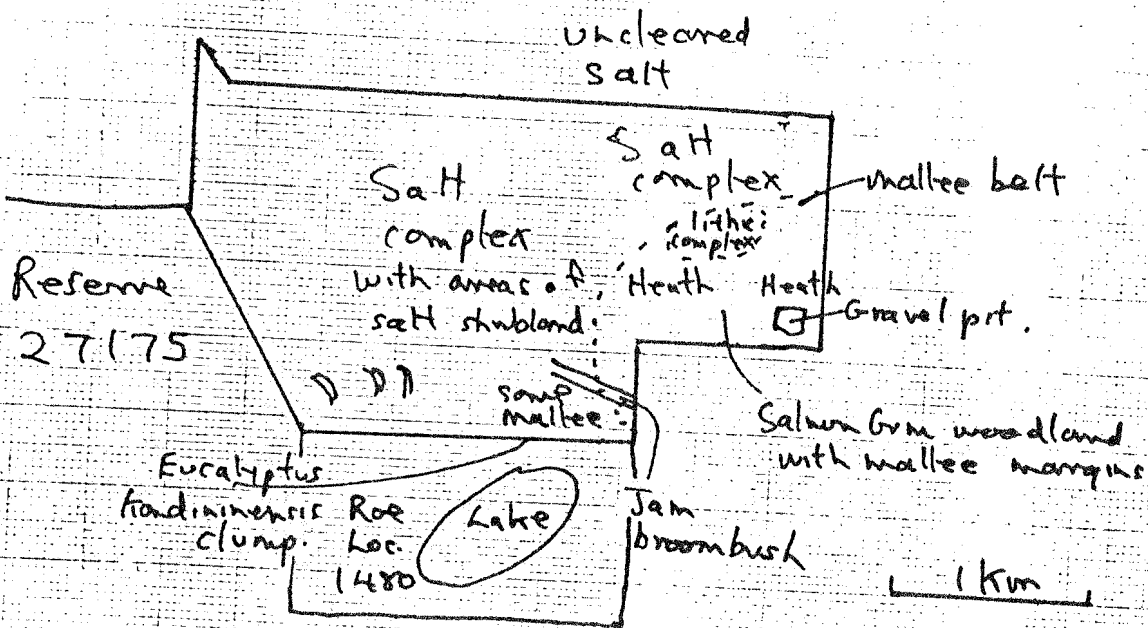 uncleared
salt
Salt
complex
mallee belt
lithic
complex
Salt
complex
with areas of
salt shrubland
Heath
Heath
Gravel pit.
Reserve
27175
some
mallee
Salmon Gum woodland
with mallee margins
Eucalyptus
kondininensis
clump.
Roe
Loc.
1480
Lake
Jam
broombush
1 Km